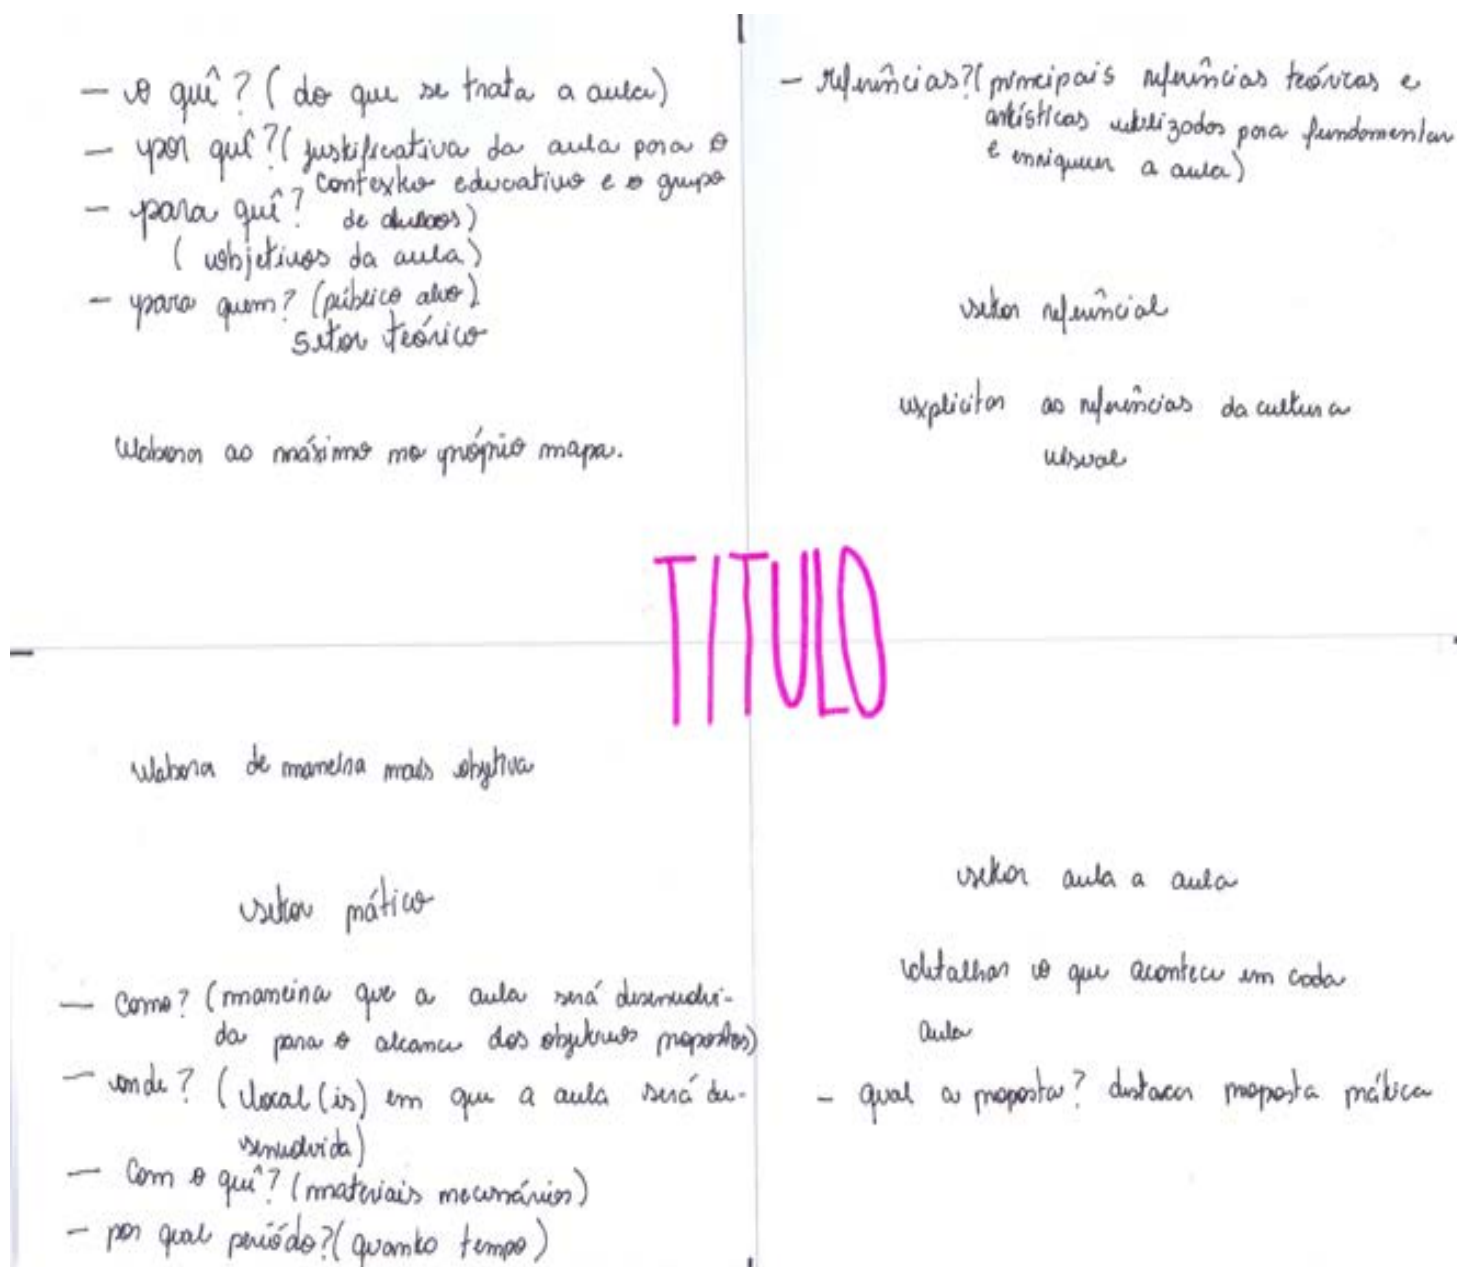 - o quê? (do que se trata a aula)
- por quê? (justificativa da aula para o
contexto educativo e o grupo
- para quê? de alunos)
(objetivos da aula)
- para quem? (público alvo)
setor teórico
elaborar ao máximo no próprio mapa.
- referências? (principais referências teóricas e
artísticas utilizados para fundamentar
e enriquecer a aula)
setor referêncial
explicitar as referências da cultura
visual
TITULO
elabora de maneira mais objetiva
setor prático
- Como? (maneira que a aula será desenvolvi-
da para o alcance dos objetivos propostos)
- onde? (local(is) em que a aula será de-
senvolvida)
- Com o quê? (materiais necessários)
- por qual período? (quanto tempo)
setor aula a aula
detalhar o que acontece em cada
aula
- qual a proposta? destacar proposta prática